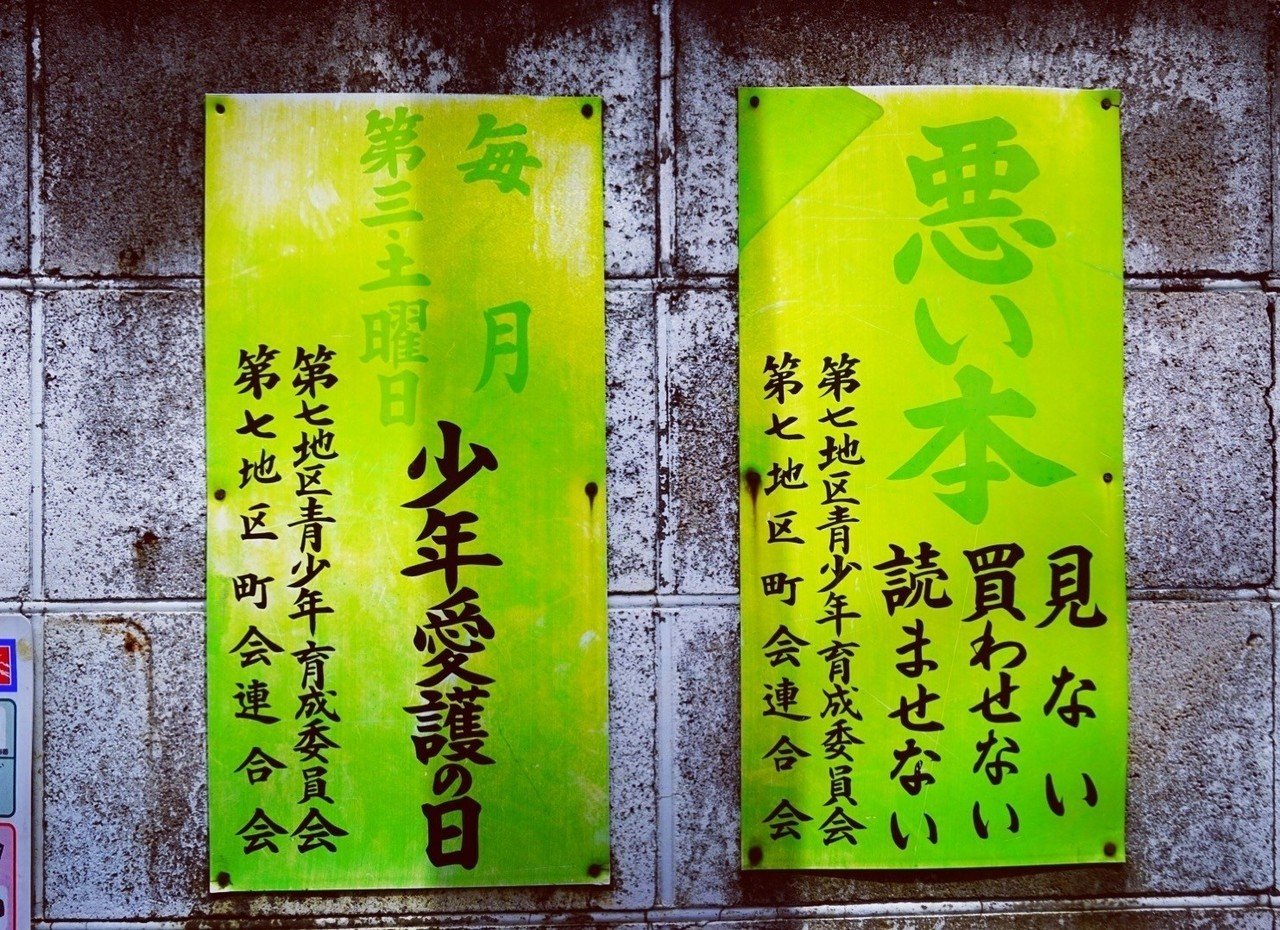 悪い本
見ない
買わせない
読ませない
第七地区青少年育成委員会
第七地区町会連合会
毎月
第三・土曜日
少年愛護の日
第七地区青少年育成委員会
第七地区町会連合会